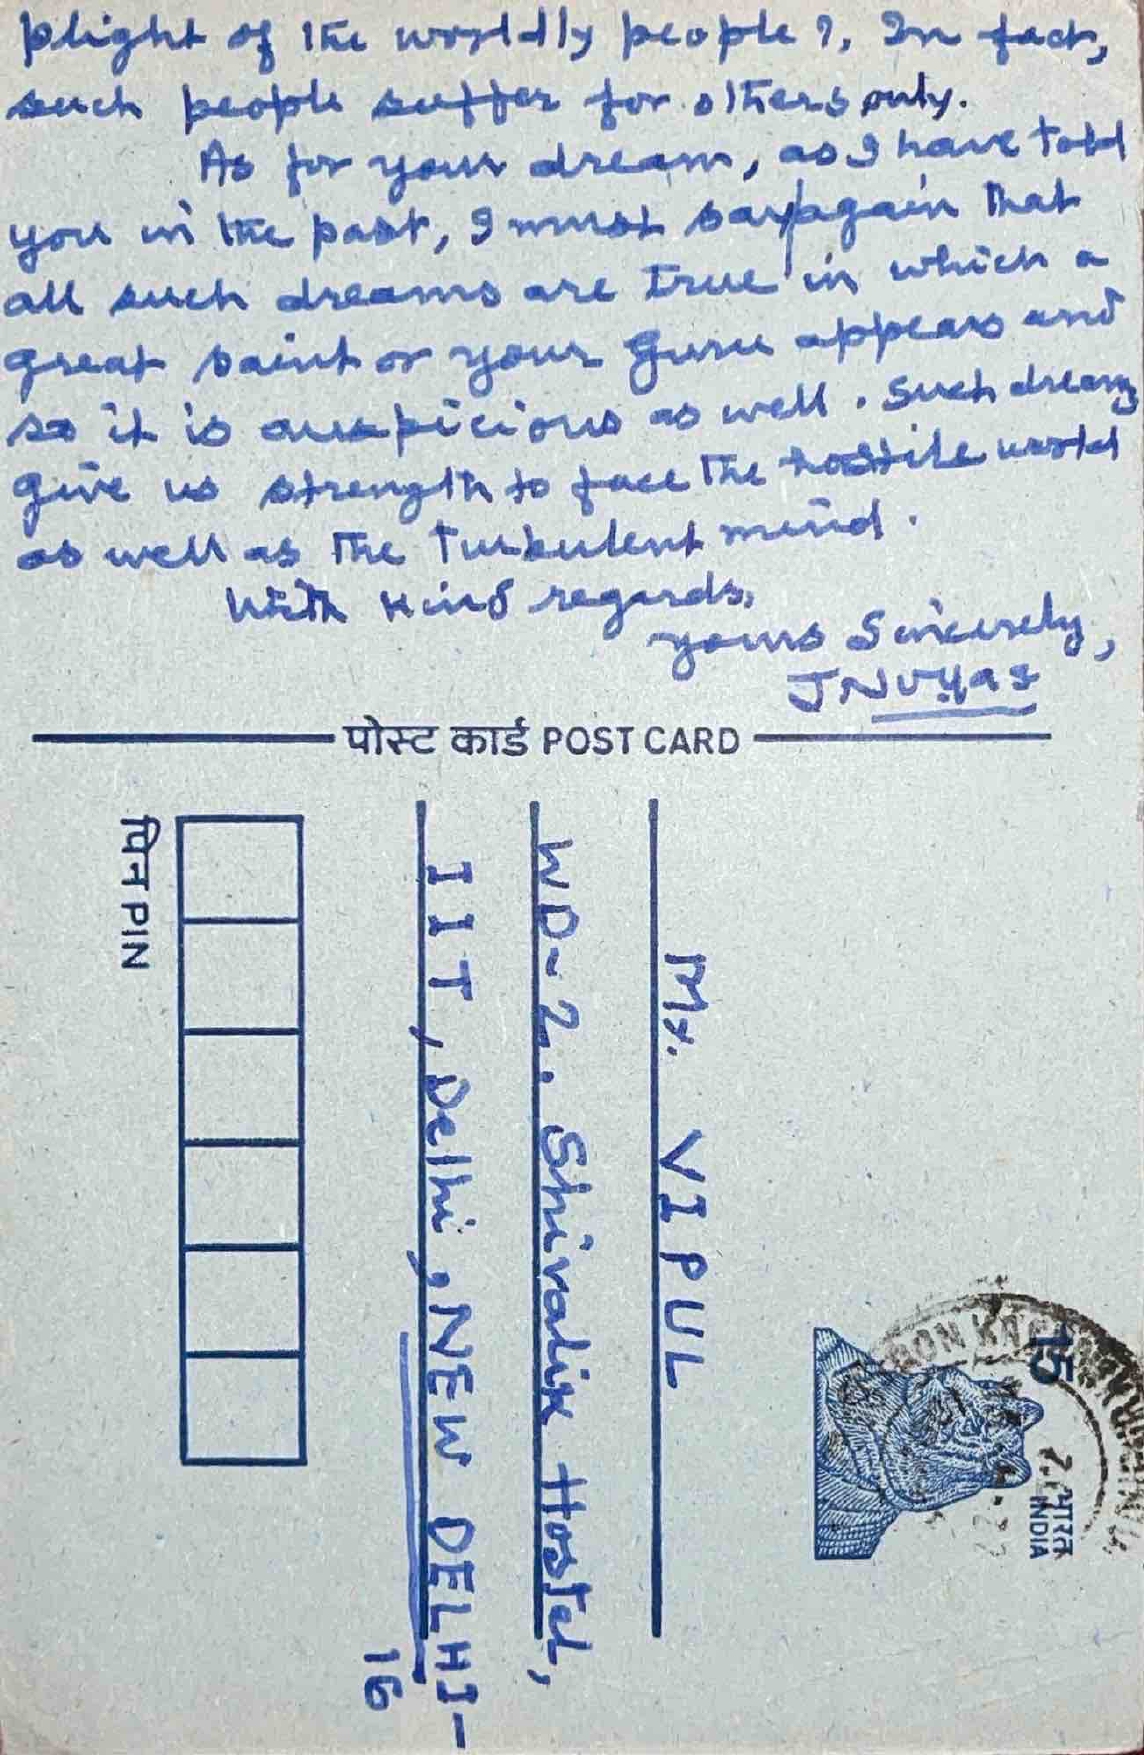 plight of the worldly people?, In fact,
such people suffer for others only.
As for your dream, as I have told
you in the past, I must say again that
all such dreams are true in which a
great saint or your Guru appears and
so it is auspicious as well. Such dreams
give us strength to face the hostile world
as well as the turbulent mind.
With kind regards,
yours Sincerely,
JNVyas
पोस्ट कार्ड POST CARD
Mr. VIPUL
WD-2. Shivalik Hostel,
IIT, Delhi, NEW DELHI-
16
पिन PIN
15
भारत
INDIA